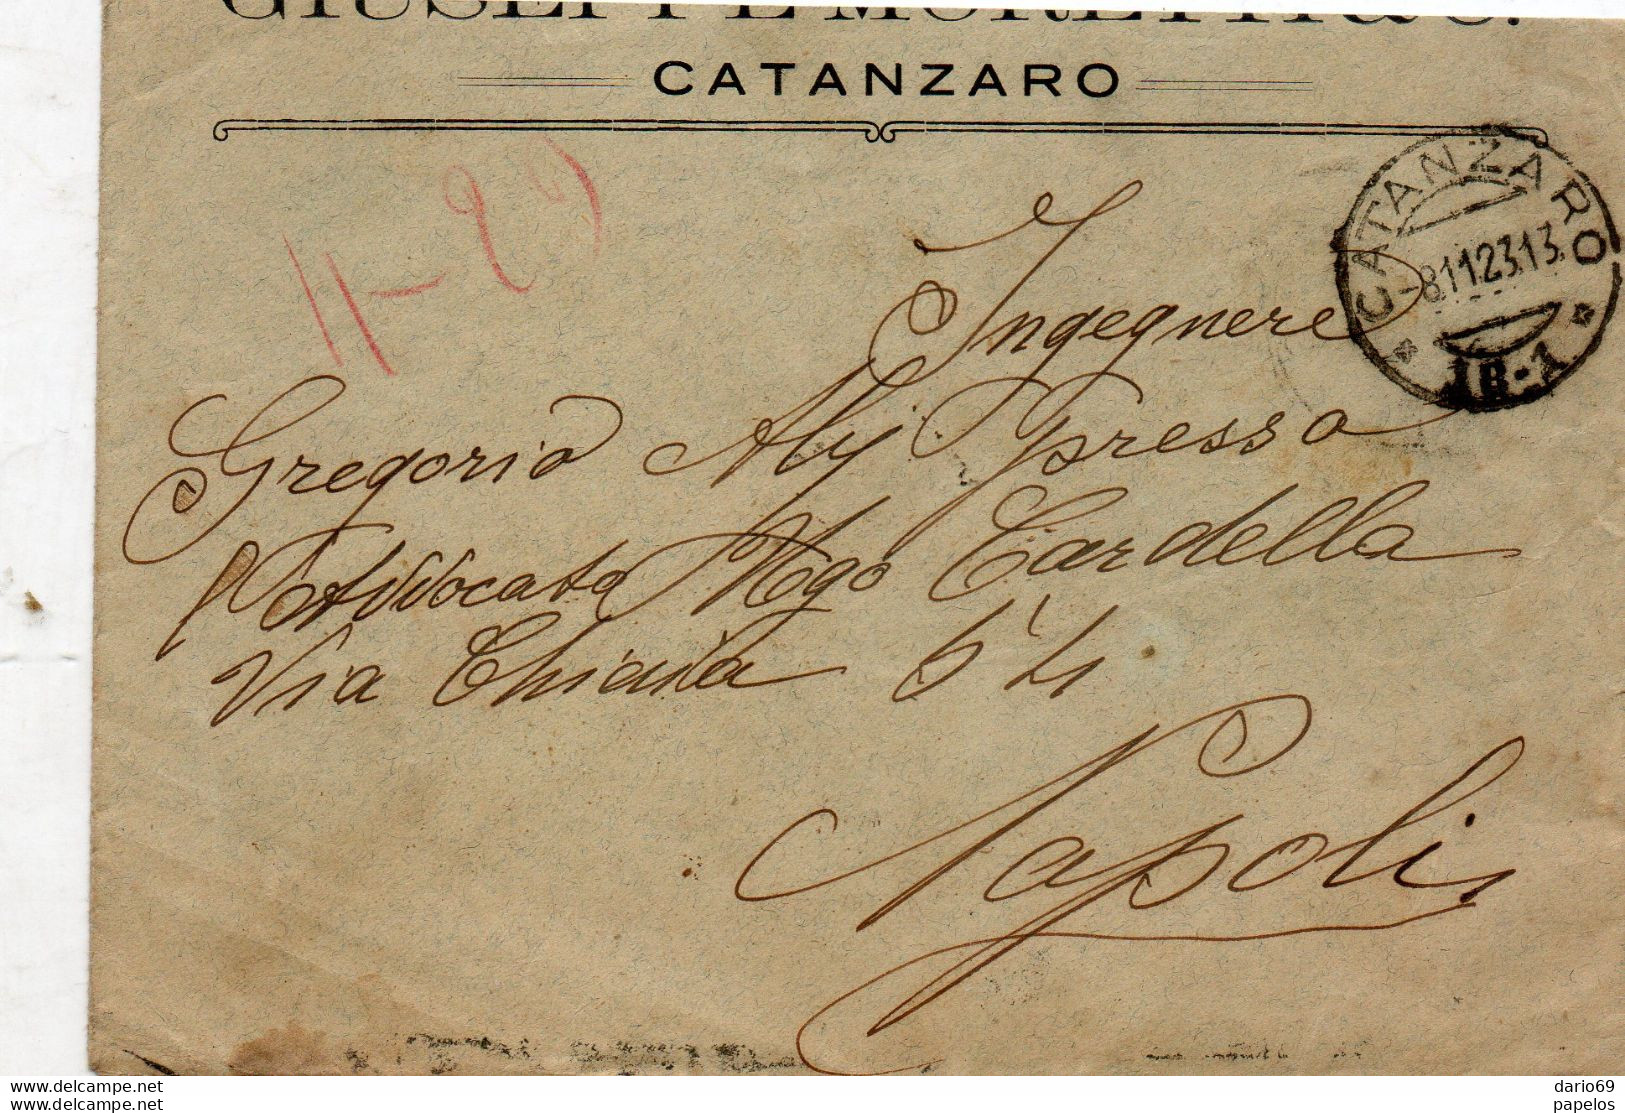 GIUSEPPE MORETTI & C.
CATANZARO
11-29
CATANZARO
-8.11.23.13.
Ingegnere
Gregorio Aly presso
l'Avvocato Ugo Cardella
Via Chiaia 54
Napoli
www.delcampe.net
www.delcampe.net
dario69
papelos